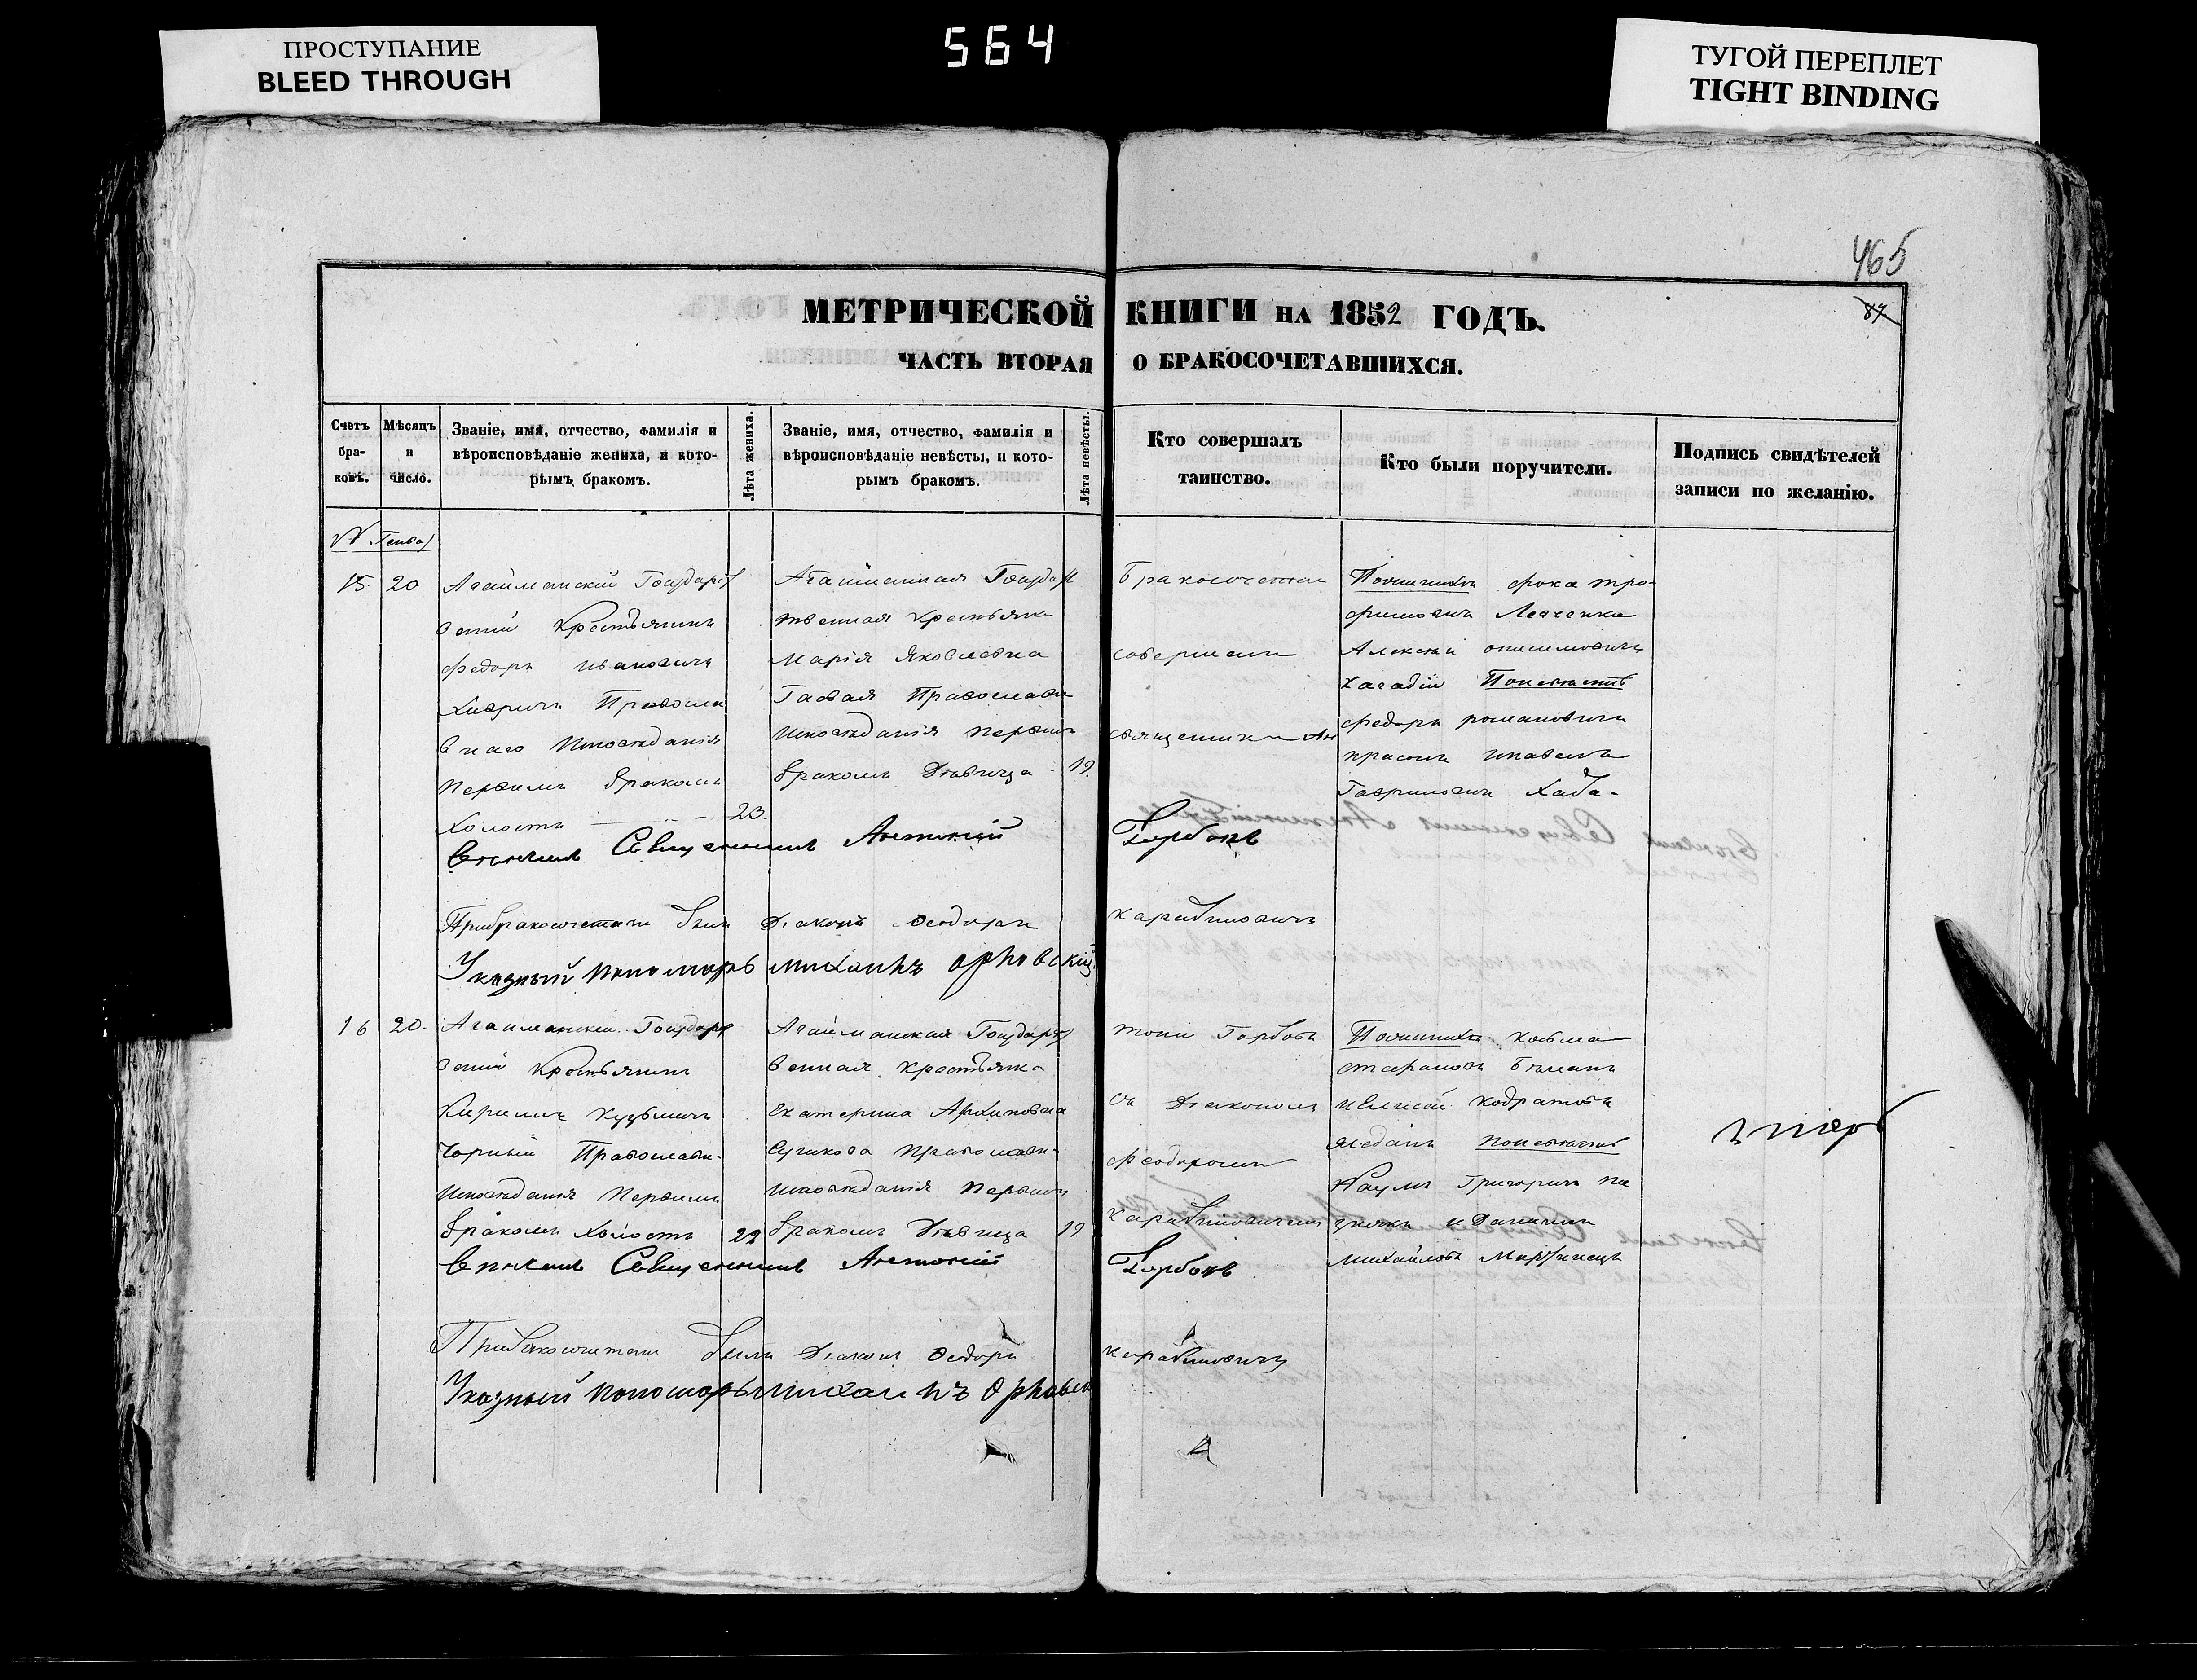 ПРОСТУПАНИЕ
BLEED THROUGH
564
ТУГОЙ ПЕРЕПЛЕТ
TIGHT BINDING
465
87
МЕТРИЧЕСКОЙ КНИГИ НА 1852 ГОДЪ.
ЧАСТЬ ВТОРАЯ О БРАКОСОЧЕТАВШИХСЯ.
Счетъ бра-ковъ.
Мѣсяцъ и число.
Званіе, имя, отчество, фамилія и
вѣроисповѣданіе жениха, и кото-
рымъ бракомъ.
Лѣта жениха.
Званіе, имя, отчество, фамилія и
вѣроисповѣданіе невѣсты, и кото-
рымъ бракомъ.
Лѣта невѣсты.
Кто совершалъ
таинство.
Кто были поручители.
Подпись свидѣтелей
записи по желанію.
15
20
Агайманскій Государст
венній Крестьянинъ
Федоръ Ивановичъ
Православ
наго Исповѣданія
Первымъ бракомъ
Холостъ
23.
Государс
твенная Крестьянка
Марія Яковлевна
Гаевая Православн
Исповѣданія Первымъ
бракомъ Дѣвица
19.
Бракосочетан
совершали
священникъ Ан
Фока Тро-
фимовичъ Левченко
Алексѣй Онисимовичъ
Федоръ Романовичъ
Гавриловичъ
Вѣнчалъ Священникъ Антоній Горбовъ
При бракосочетани былъ Діаконъ Феодоръ Карабиновичъ
Указный Пономарь Михаилъ Орловскій
16
20.
Агайманскій Государс
венній Крестьянинъ
Кирилъ Кузьмичъ
Чорный Православн-
Исповѣданія Первымъ
бракомъ Холостъ
22
Агайманская Государст
венная Крестьянка
Екатерина Архиповна
Сучкова Православн-
Исповѣданія Первымъ
бракомъ Дѣвица
19
тоній Горбовъ
съ Діакономъ
Феодоромъ
Карабиновичемъ
Козьма
Стефановъ
и Елисей Кодратовъ
Наумъ Григорьевъ
и Данилъ
Михайловъ Мартинецъ
Вѣнчалъ Священникъ Антоній Горбовъ
При бракосочетани былъ Діаконъ Феодоръ Карабиновичъ
Указный Пономарь Михаилъ Орловск